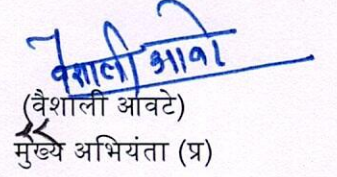 वैशाली आवटे
(वैशाली आंवटे)
मुख्य अभियंता (प्र)